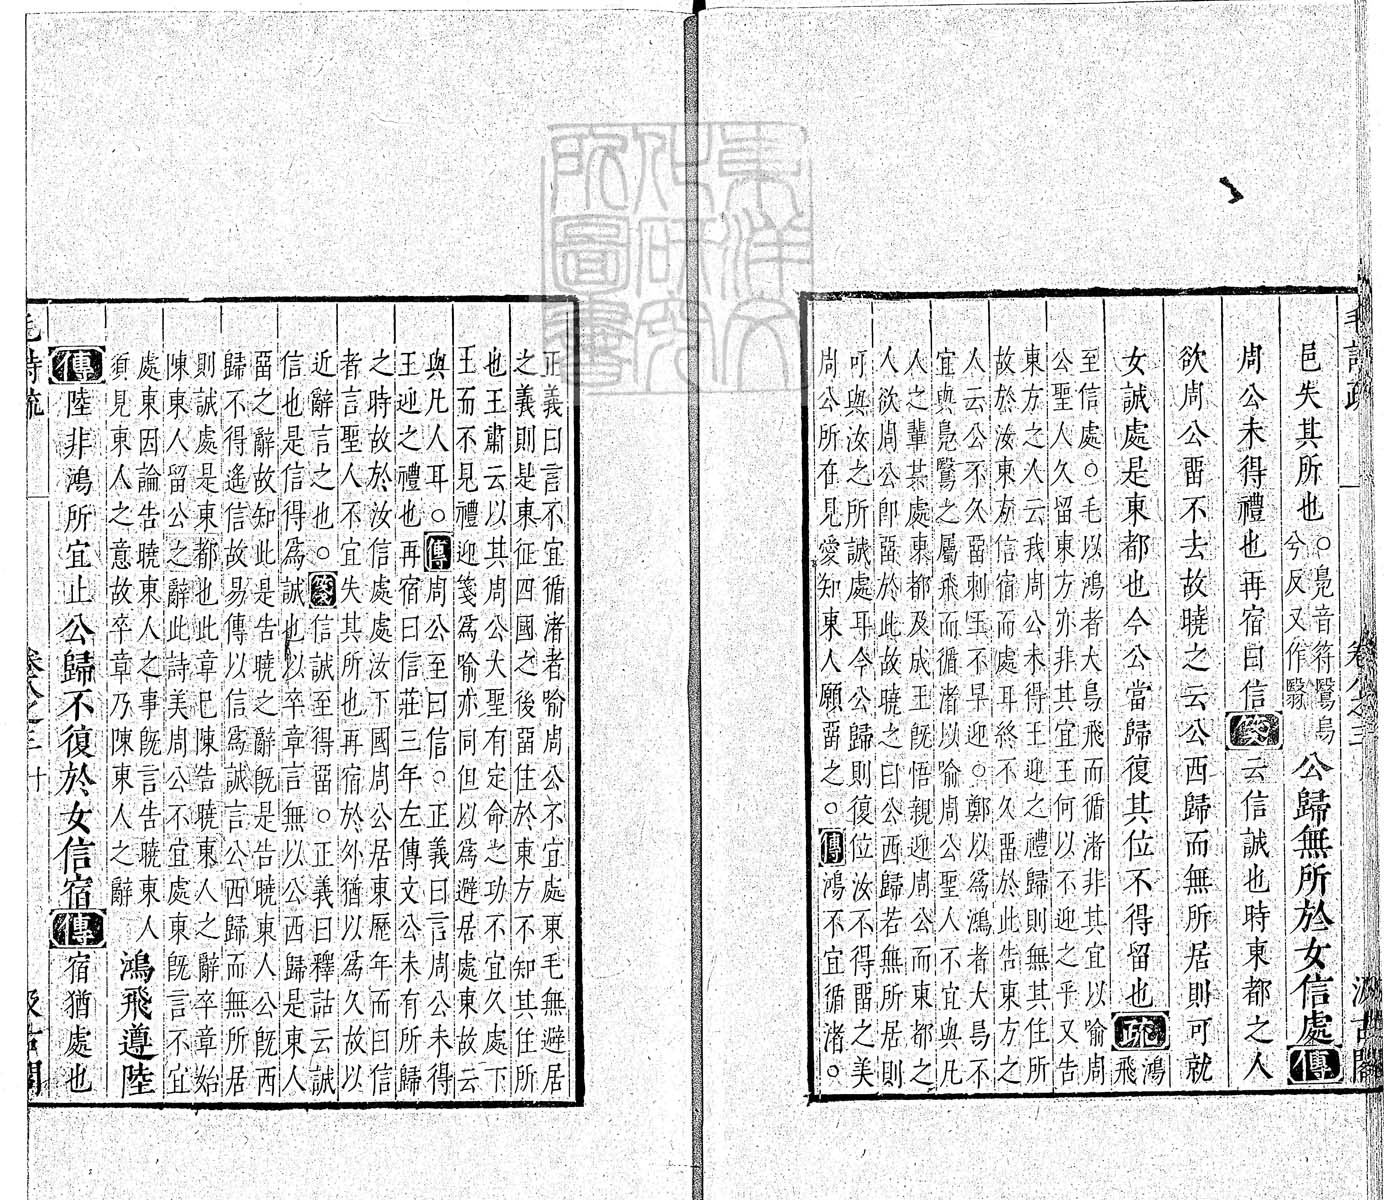 毛詩疏 卷八之三 汲古閣
邑失其所也○鳧音符鷖烏兮反又作翳公歸無所於女信處傳
周公未得禮也再宿曰信箋云信誠也時東都之人
欲周公畱不去故曉之云公西歸而無所居則可就
女誠處是東都也今公當歸復其位不得留也疏鴻飛
至信處○毛以鴻者大鳥飛而循渚非其宜以喻周
公聖人久留東方亦非其宜王何以不迎之乎又告
東方之人云我周公未得王迎之禮歸則無其住所
故於汝東方信宿而處耳終不久畱於此告東方之
人云公不久畱刺王不早迎○鄭以爲鴻者大鳥不
宜與鳧鷖之屬飛而循渚以喻周公聖人不宜與凡
人之輩共處東都及成王旣悟親迎周公而東都之
人欲周公卽畱於此故曉之曰公西歸若無所居則
可與汝之所誠處耳今公歸則復位汝不得畱之美
周公所在見愛知東人願畱之○傳鴻不宜循渚○
正義曰言不宜循渚者喻周公不宜處東毛無避居
之義則是東征四國之後畱住於東方不知其住所
也王肅云以其周公大聖有定命之功不宜久處下
王而不見禮迎箋爲喻亦同但以爲避居處東故云
與凡人耳○傳周公至曰信○正義曰言周公未得
王迎之禮也再宿曰信莊三年左傳文公未有所歸
之時故於汝信處處汝下國周公居東歷年而曰信
者言聖人不宜失其所也再宿於外猶以爲久故以
近辭言之也○箋信誠至得畱○正義曰釋詁云誠
信也是信得爲誠也以卒章言無以公西歸是東人
畱之辭故知此是告曉之辭旣是告曉東人公旣西
歸不得遙信故易傳以信爲誠言公西歸而無所居
則誠處是東都也此章巳陳告曉東人之辭卒章始
陳東人留公之辭此詩美周公不宜處東旣言不宜
處東因論告曉東人之事旣言告曉東人
須見東人之意故卒章乃陳東人之辭鴻飛遵陸
傳陸非鴻所宜止公歸不復於女信宿傳宿猶處也
毛詩疏 卷八之三 十 汲古閣
東洋文化研究所圖書